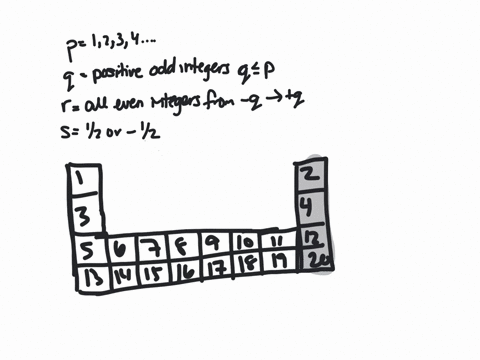 p=1,2,3,4....
q = positive odd integers q≤p
r= all even integers from -q→+q
s= 1/2 or - 1/2
1 2
3 4
5 6 7 8 9 10 11 12
13 14 15 16 17 18 19 20